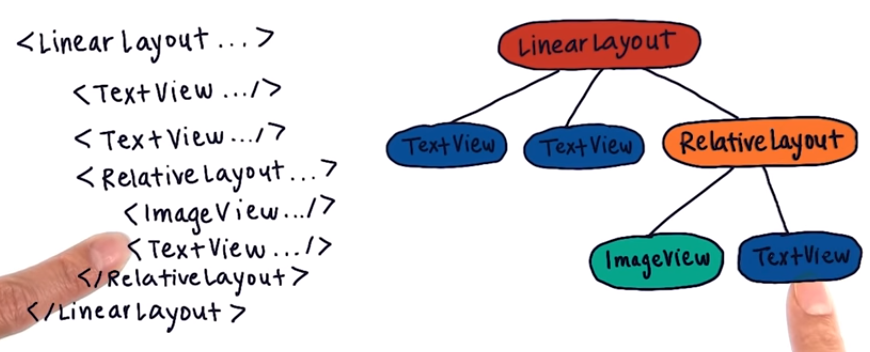 <LinearLayout ...>
<TextView .../>
<TextView .../>
<RelativeLayout ...>
<ImageView .../>
<TextView .../>
</RelativeLayout>
</LinearLayout>
LinearLayout
TextView TextView RelativeLayout
ImageView TextView